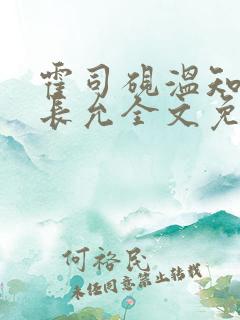 霍司砚温知
长允全文免
何裕民
未经同意禁止转载